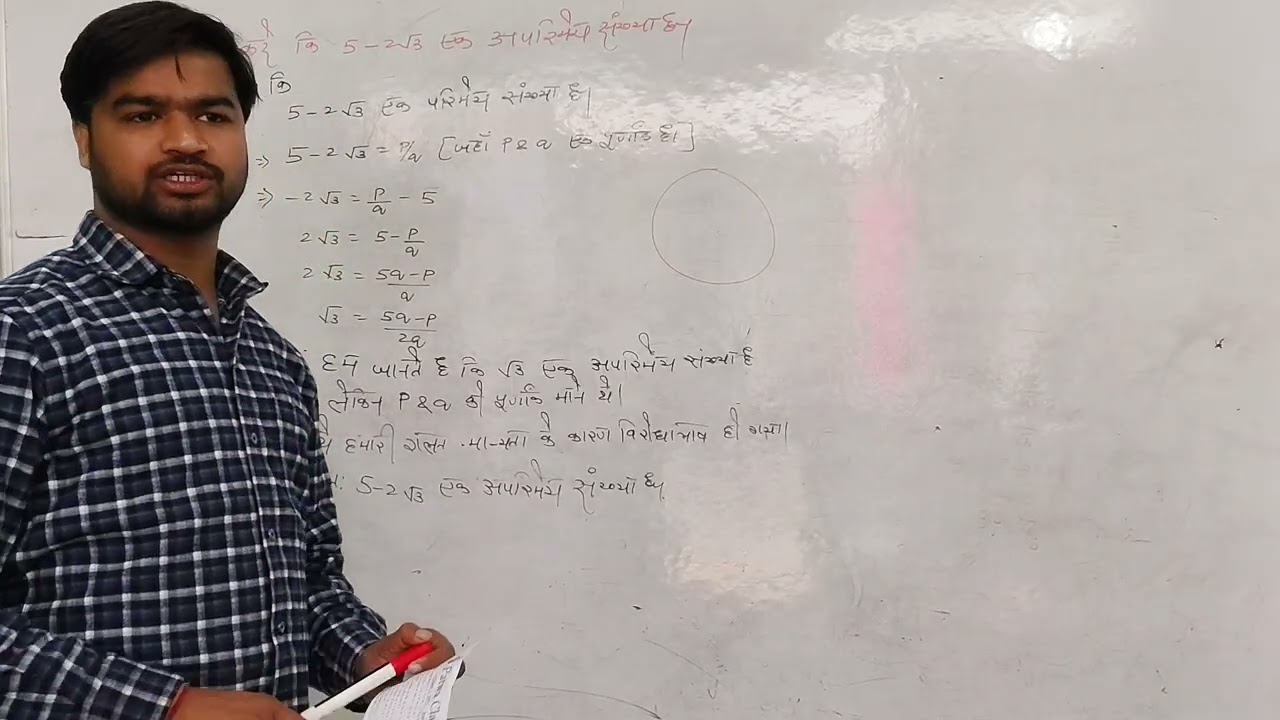 कि 5-2√3 एक अपरिमेय संख्या है।
कि
5-2√3 एक परिमेय संख्या है।
⇒ 5-2√3 = P/q [जहाँ P & q एक पूर्णांक है।]
⇒ -2√3 = P/q - 5
2√3 = 5-P/q
2√3 = 5q-P/q
√3 = 5q-P/2q
हम जानते है कि √3 एक अपरिमेय संख्या है
लेकिन P & q को पूर्णांक माने थे।
हमारी गलत मान्यता के कारण विरोधाभाष हो गया।
5-2√3 एक अपरिमेय संख्या है।